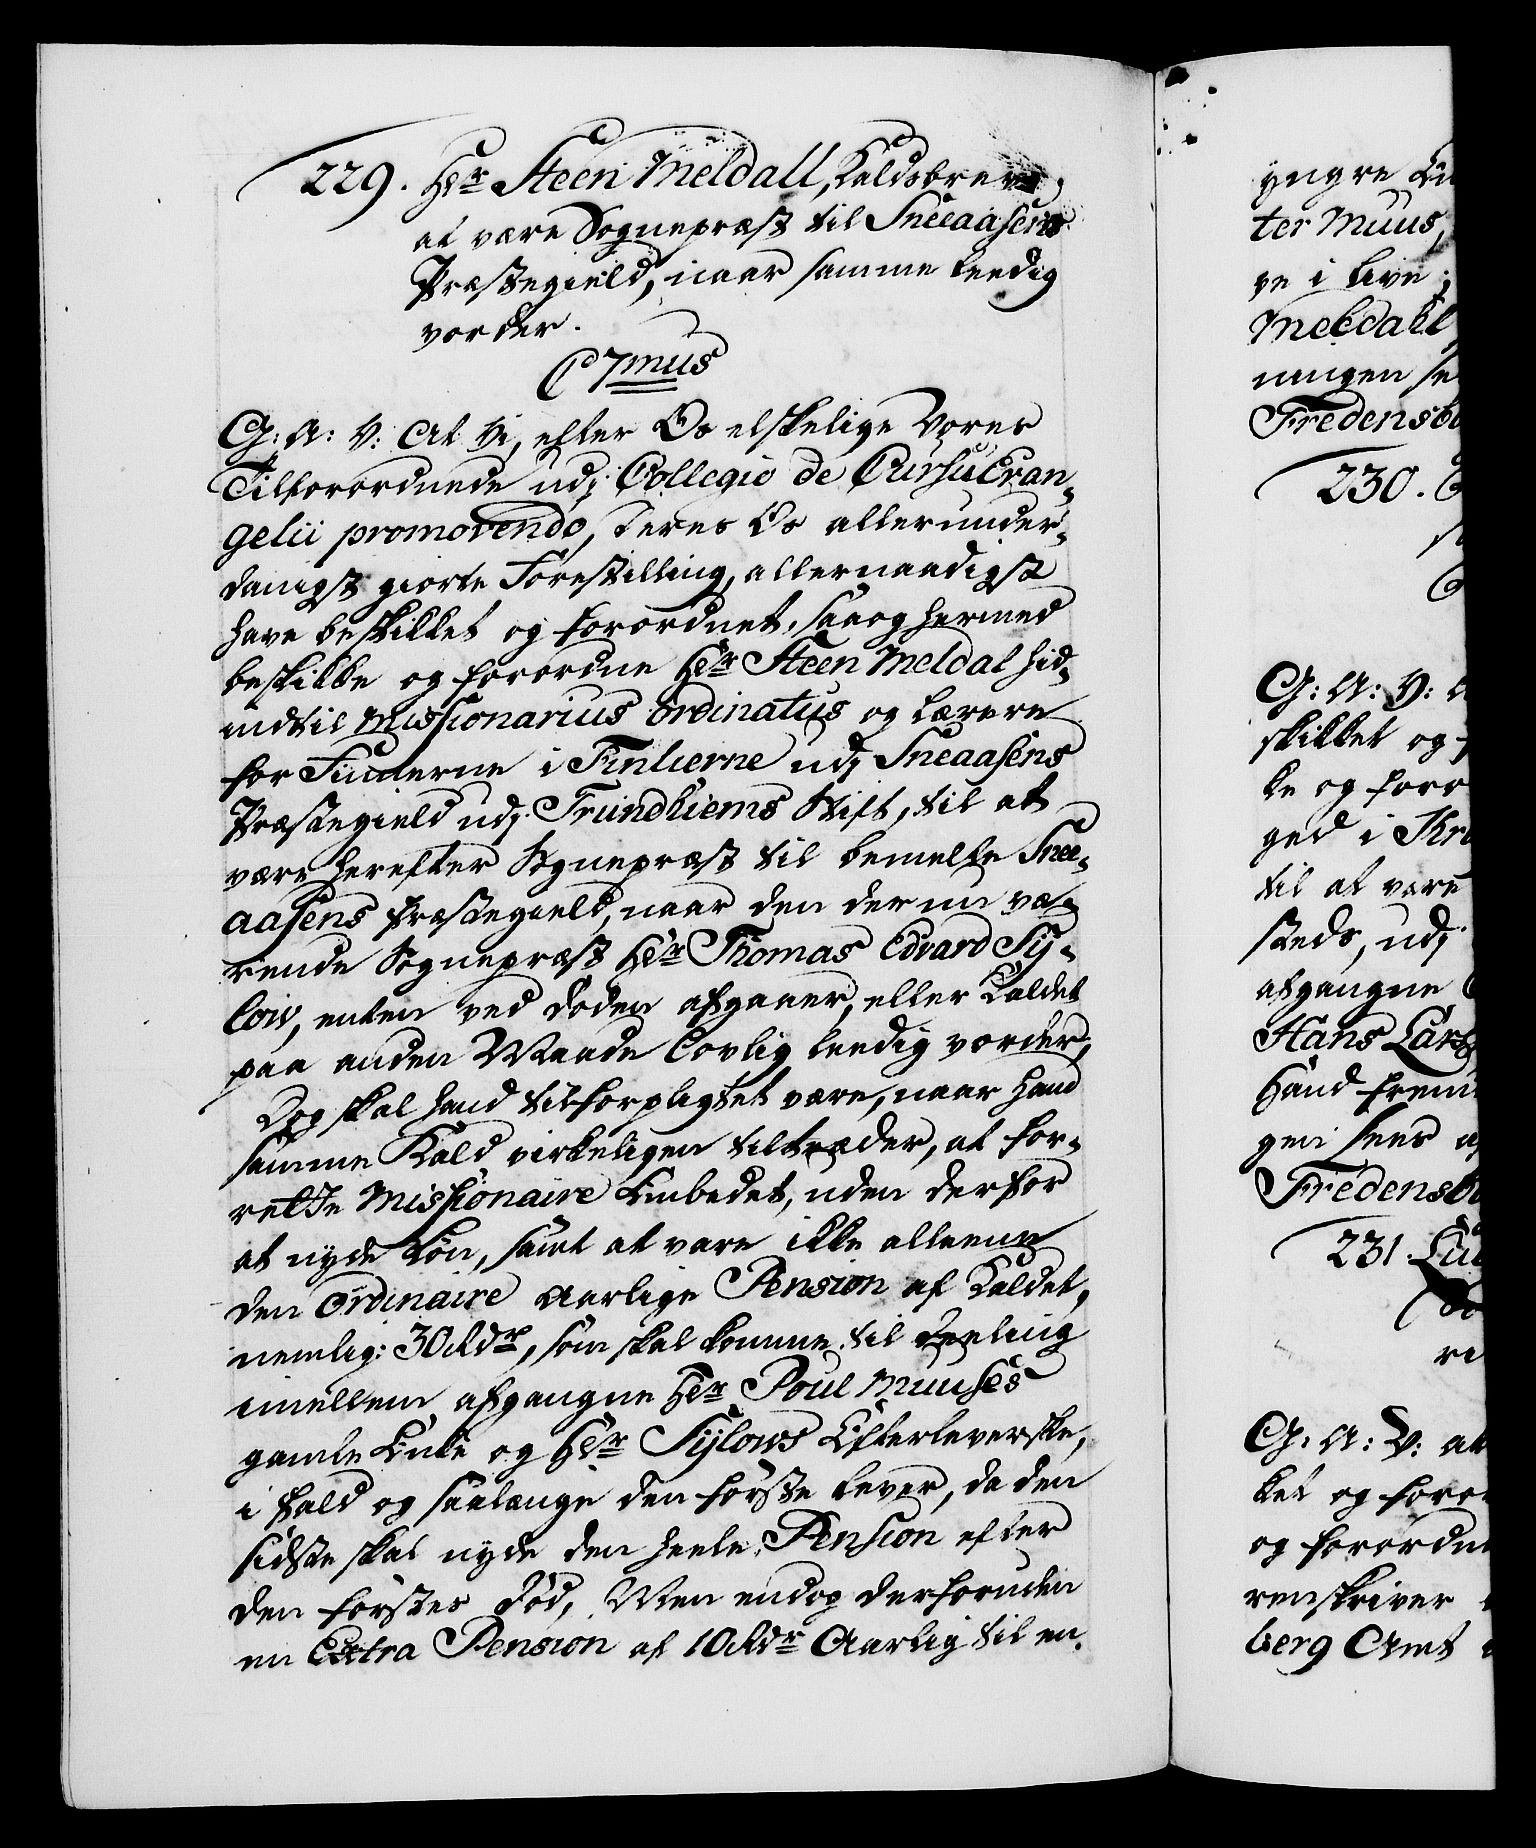 229. Hr Steen Meldall, Kaldsbrev,
at være Sognepræst til Sneeaasens
Præstegield, naar samme leedig
vorder.
C 7mus
G: A: V: At Vi, efter Os elskelige Vores
Tilforordnede udj Collegio de Cursu Evan-
gelii promovendo, deres Os allerunder-
danigst giorte Forestilling, allernaadigst
have beskikket og forordnet, saa og hermed
beskikke og forordne Hr Steen Meldal hid-
indtil Missionarius ordinatus og Lærere
for Finnerne i Finlierne udj Sneaasens
Præstegield udj Trundhiems Stift, til at
være herefter Sognepræst til bemelte Snee-
aasens Præstegield, naar den der nu væ-
rende Sognepræst Hr Thomas Edvard Sy-
low, enten ved døden afgaaer, eller Kaldet
paa anden Maade lovlig leedig vorder;
Dog skal hand tilforpligtet være, naar hand
samme Kald virkeligen tiltræder, at for-
rette Missionaire Embedet, uden derfor
at nyde Løn, samt at vare ikke alleene
den ordinaire aarlige Pension af Kaldet,
nemlig: 30 Rdr, som skal komme til deeling
imellem afgangne Hr Poul Muuses
gamle Enke og Hr Sylows Efterleverske,
i fald og saalænge den første lever, da den
sidste skal nyde den heele Pension efter
den førstes død, Men endog derforuden
en Extra Pension af 10 Rdr Aarlig til en
yngre
ter Muus,
ve i live;
Meldahl
ningen se
Fredensb
230.
G: A: V:
skikket og
ke og foro
ged i Kri
til at være
steds, udj
afgangne
Hans Lars
Haand frem
gen sees
Fredensb
231.
re
G: A: V: at
ket og foror
og forordn
renskriver
berg Amt